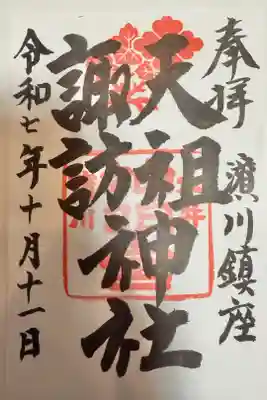 奉拝
濱川鎮座
天祖
諏訪
神社
令和七年十月十一日